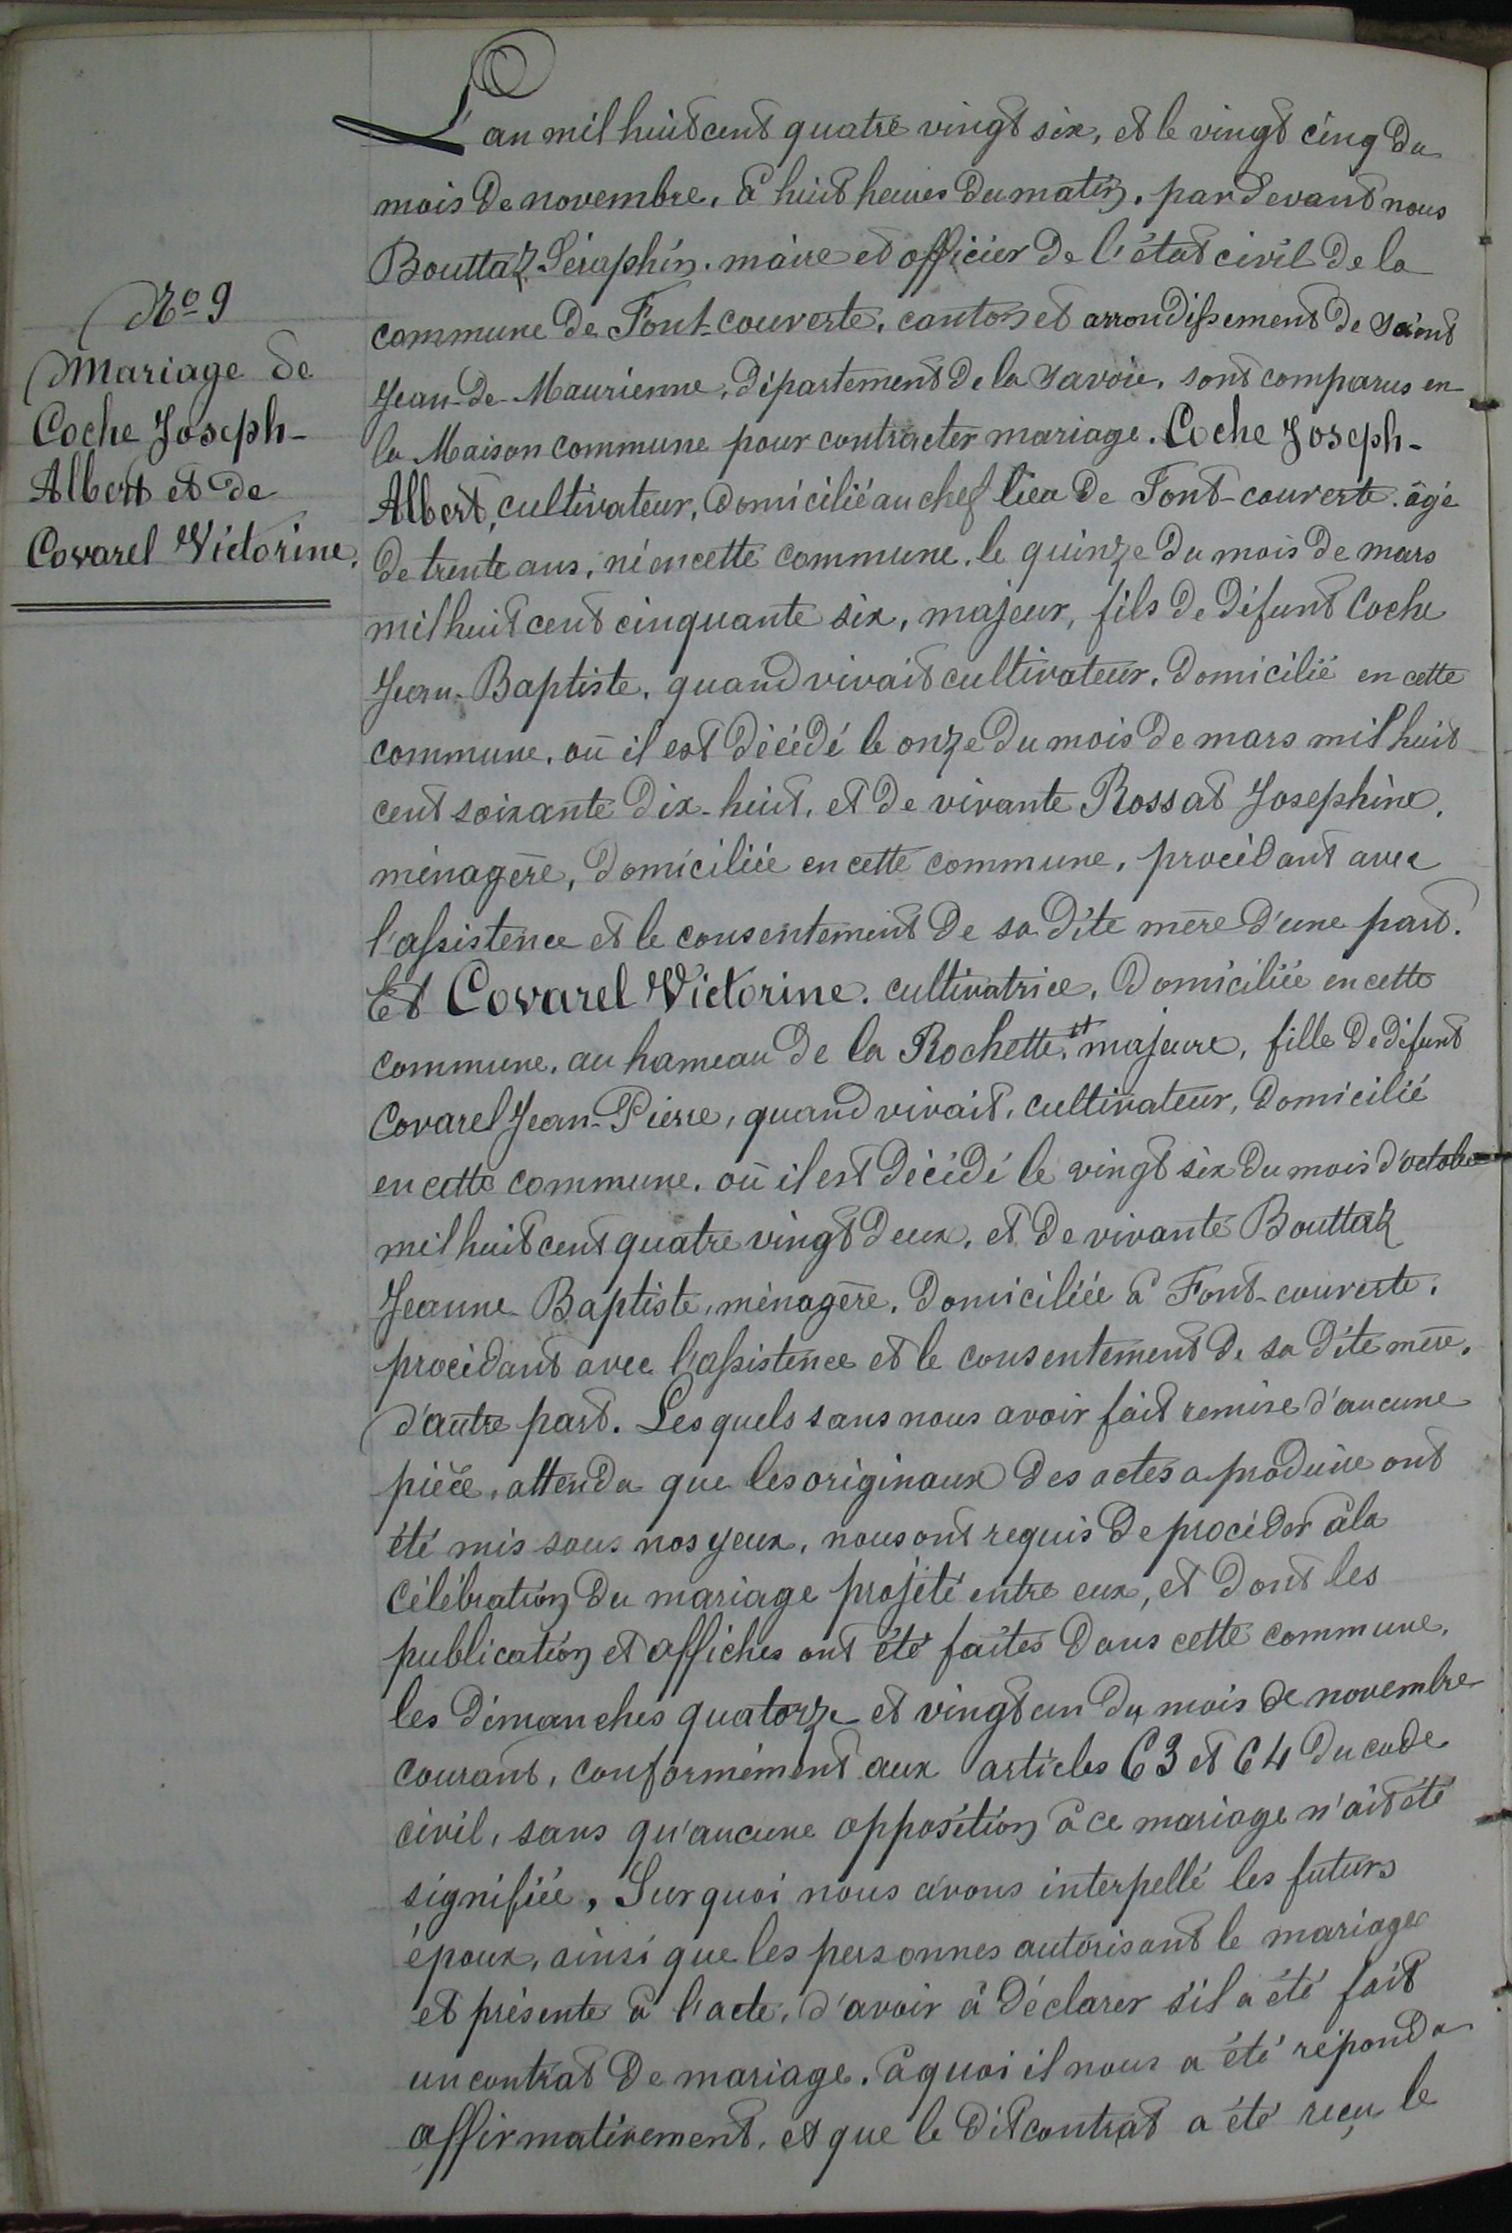 L'an mil huit cent quatre vingt six, et le vingt cinq du
mois de novembre, à huit heures du matin, par devant nous
Bouttaz Séraphin, maire et officier de l'état civil de la
commune de Font-couverte, canton et arrondissement de Saint
Jean-de-Maurienne, département de la Savoie, sont comparus en
la Maison commune pour contracter mariage. Coche Joseph-
Albert, cultivateur, domicilié au chef lieu de Font-couverte, âgé
de trente ans, né en cette commune, le quinze du mois de mars
mil huit cent cinquante six, majeur, fils de défunt Coche
Jean-Baptiste, quand vivait cultivateur, domicilié en cette
commune, où il est décédé le onze du mois de mars mil huit
cent soixante dix-huit, et de vivante Rossat Josephine,
ménagère, domiciliée en cette commune, procédant avec
l'assistence et le consentement de sa dite mère d'une part.
Et Covarel Victorine, cultivatrice, domiciliée en cette
commune, au hameau de la Rochette, et majeure, fille de défunt
Covarel Jean-Pierre, quand vivait, cultivateur, domicilié
en cette commune, où il est décédé le vingt six du mois d'octobre
mil huit cent quatre vingt deux, et de vivante Bouttaz
Jeanne-Baptiste, ménagère, domiciliée à Font-couverte,
procédant avec l'assistence et le consentement de sa dite mère,
d'autre part. Lesquels sans nous avoir fait remise d'aucune
pièce, attendu que les originaux des actes a produire ont
été mis sous nos yeux, nous ont requis de procéder à la
célébration du mariage projeté entre eux, et dont les
publication et affiches ont été faites dans cette commune,
les dimanches quatorze et vingt un du mois de novembre
courant, conformément aux articles 63 et 64 du code
civil, sans qu'aucune opposition à ce mariage n'ait été
signifiée, Sur quoi nous avons interpellé les futurs
époux, ainsi que les personnes autorisant le mariage
et présente à l'acte, d'avoir à déclarer s'il a été fait
un contrat de mariage, à quoi il nous a été répondu
affirmativement, et que le dit contrat a été reçu le
No 9
Mariage de
Coche Joseph-
Albert et de
Covarel Victorine.